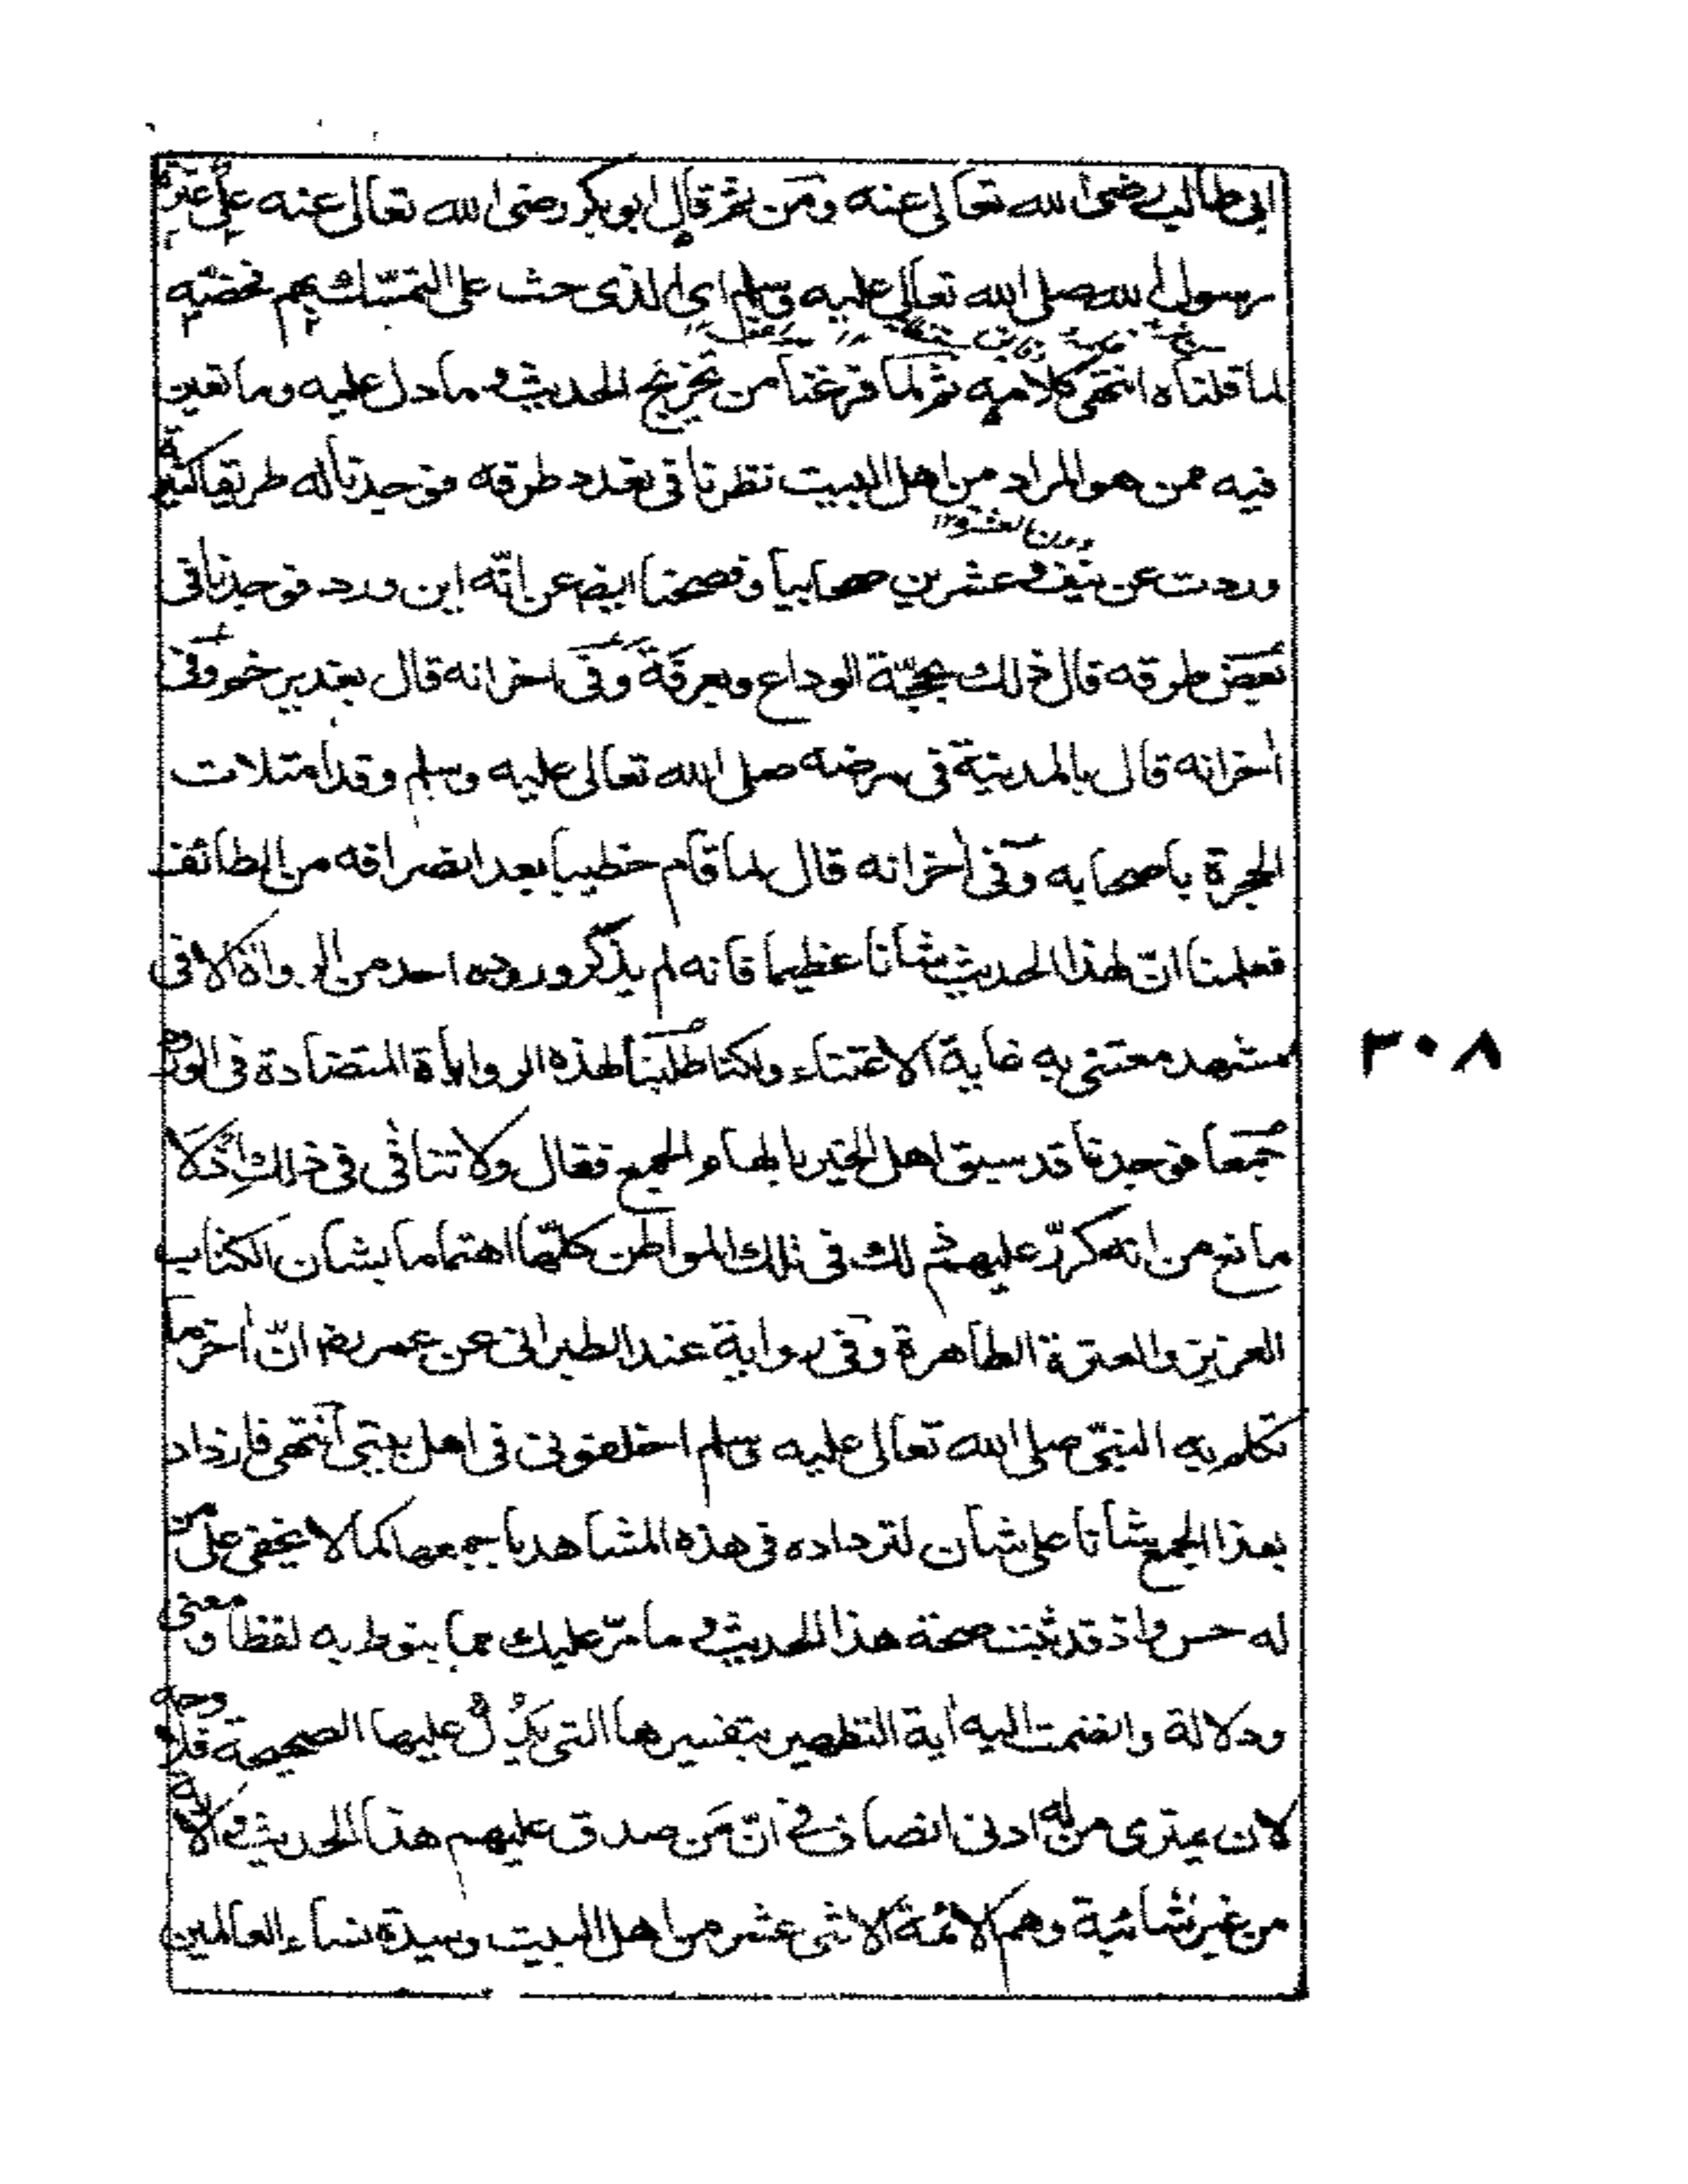 ابى طالب رضى الله تعالى عنه ومَن ثم قال ابو بكر رضى الله تعالى عنه علىّ عترة
رسول الله صلى الله تعالى عليه وسلم اى الذى حث على التمسّك بهم فخصّه
لما قلناه انتهى كلامه ثم لما فرغنا من تخريج الحديث وما دل عليه وما تعين
فيه ممن هو المراد من اهل البيت نظرنا فى تعدد طرقه فوجدنا له طريقا كثيرة
وردت عن نيف وعشرين صحابيا وفصحنا ايضا عن انّه اين ورد فوجدنا فى
بعض طرقه قال ذلك بحجّة الوداع وبعرفة وَفى اخرانه قال بغدير خم وَفى
اٰخرانه قال بالمدينة فى مرضه صلى الله تعالى عليه وسلم وقد امتلات
الحجرة باصحابه وَفى اٰخرانه قال لما قام خطيبا بعد انصرافه من الطائف
فعلمنا انّ لهذا الحديث شانا عظيما فانه لم يذكر وروده احد من الرواة الا فى
مشهد معتنى به غاية الاعتناء ولكنا طلبنا لهذه الرواياة المتضادة فى الورود
جمعا فوجدنا قد سبق اهل الخير بالهام الجمع فقال ولا تنافى فى ذلك اِذ لَا
مانع من انه كرّر عليهم ذلك فى تلك المواطن كلّها اهتماما بشان الكتاب
العزيز والعترة الطاهرة وَفى رواية عند الطبرانى عن عمر رضـ انّ اٰخر ما
تكلم به النبىّ صلى الله تعالى عليه وسلم اخلفونى فى اهل بيتى اَنتهى فازداد
بهذا الجمع شانا على شان لترداده فى هذه المشاهد باجمعها كما لا يخفى على من
له حس واذ قد ثبت صحة هذا الحديث وما مرّ عليك مما ينوط به لفظا ومعنى
ودلالة وانضمت اليه اٰية التطهير بتفسيرها التى يَدُلُّ عليها الصحيحة فلا وجه
لان يمترى من له ادنى انصاف فى انّ مَن صدق عليهم هذا الحديث والاية
من غير شائبة وهم الائمة الاثنى عشر من اهل البيت وسيدة نساء العالمين
٣٠٨